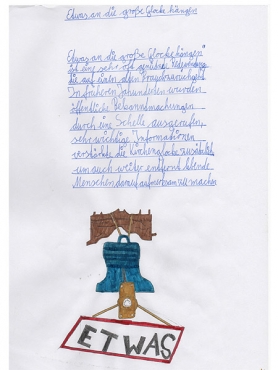 Etwas an die große Glocke hängen
Etwas an die große Glocke hängen
ist eine sehr oft genutzte Redewendung
die auf einen alten Brauch zurückgeht
In früheren Jahrhunderten wurden
öffentliche Bekanntmachungen
durch eine Schelle ausgerufen,
sehr wichtige Informationen
verstärkte die Kirchenglocke zusätzlich
um auch weiter entfernt lebende
Menschen darauf aufmerksam zu machen
ETWAS